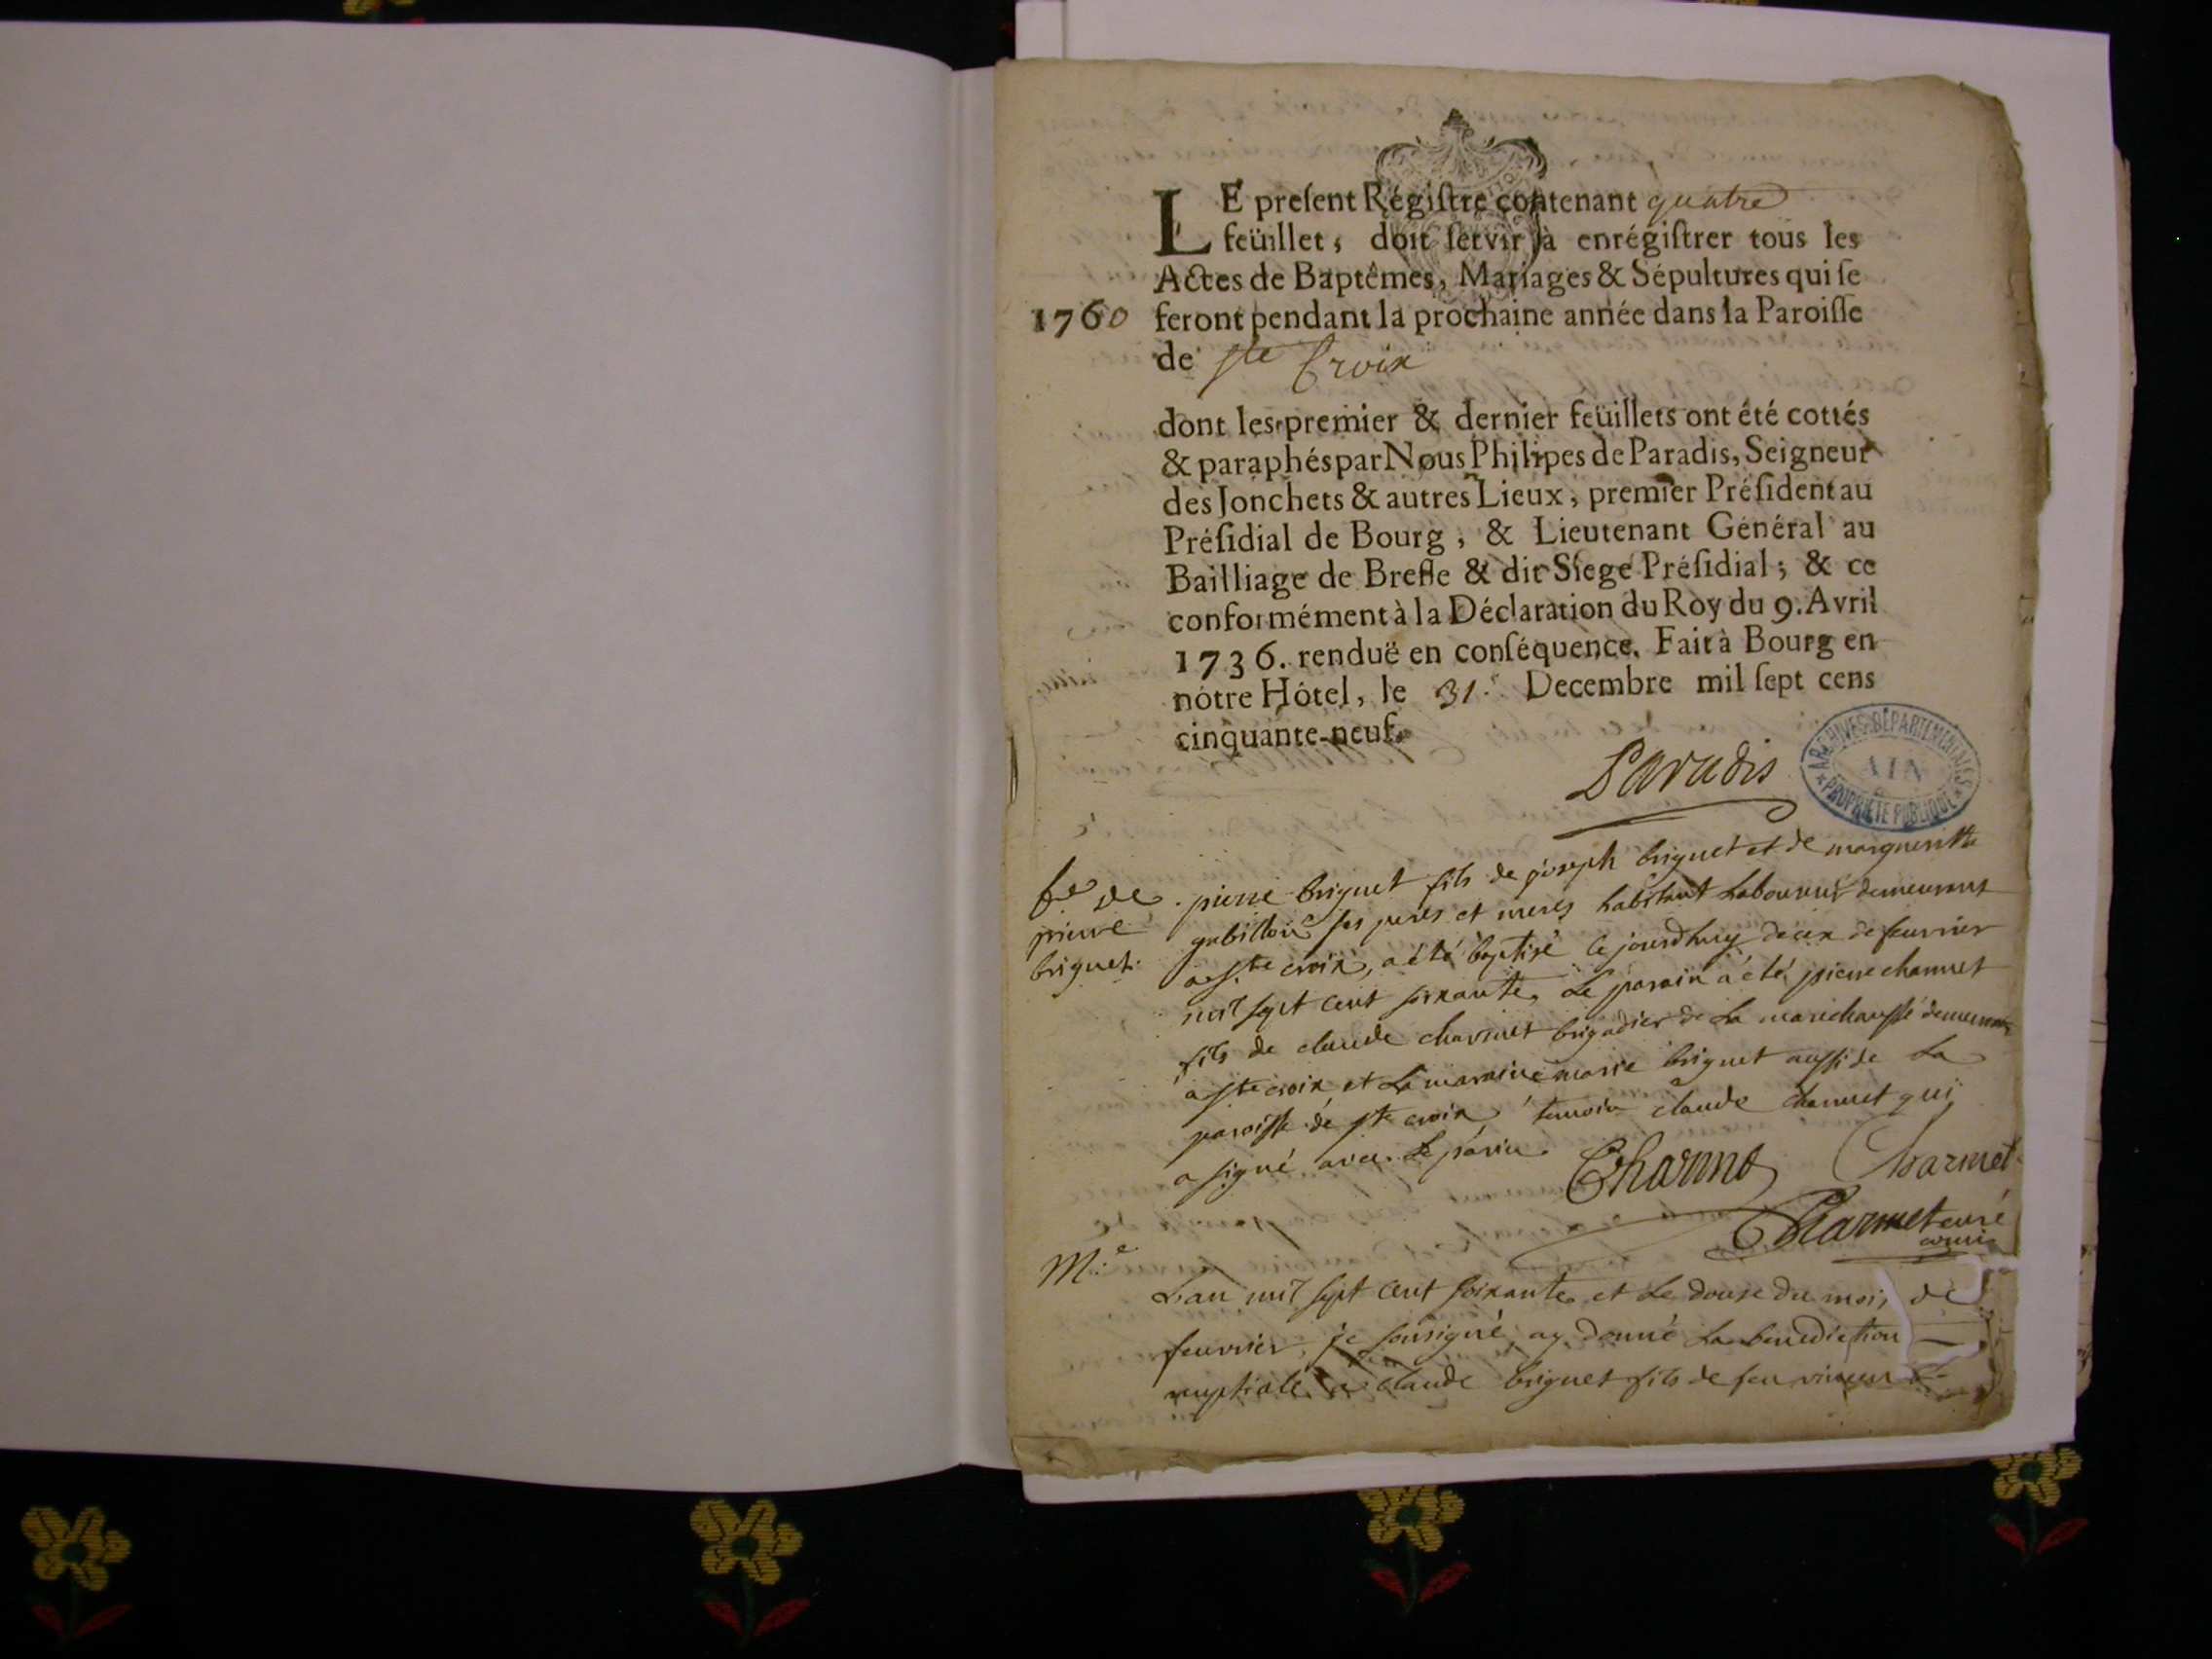 LE preſent Régiſtre contenant quatre
feüillet, doit ſervir à enrégiſtrer tous les
Actes de Baptêmes, Mariages & Sépultures qui ſe
1760 feront pendant la prochaine année dans la Paroiſſe
de ste Croix
dont les premier & dernier feüillets ont été cottés
& paraphés par Nous Philipes de Paradis, Seigneur
des Jonchets & autres Lieux, premier Préſident au
Préſidial de Bourg, & Lieutenant Général au
Bailliage de Breſſe & dit Siege Préſidial; & ce
conformément à la Déclaration du Roy du 9. Avril
1736. renduë en conſéquence. Fait à Bourg en
nôtre Hôtel, le 31. Decembre mil ſept cens
cinquante-neuf.
Paradis
ARCHIVES DÉPARTEMENTALES
AIN
PROPRIÉTÉ PUBLIQUE
be de
pierre
briquet.
pierre briquet fils de joseph briquet et de margueritte
ses peres et meres habitant Laboureur demeurant
a ste croix, a été baptisé ce jourdhuy deux de feuvrier
mil sept cent soixante, Le parain a été pierre charmet
fils de claude charmet brigadier de La marechaussé demeurant
a ste croix et La maraine marie briquet aussi de La
paroisse de ste croix temoin claude charmet qui
a signé avec Le parin
Charmet Charmet
Charmet curé
M.e
L'an mil sept cent soixante et Le douse du mois de
feuvrier, je sousigné, ay donné La benediction
nuptiale a claude briquet fils de feu